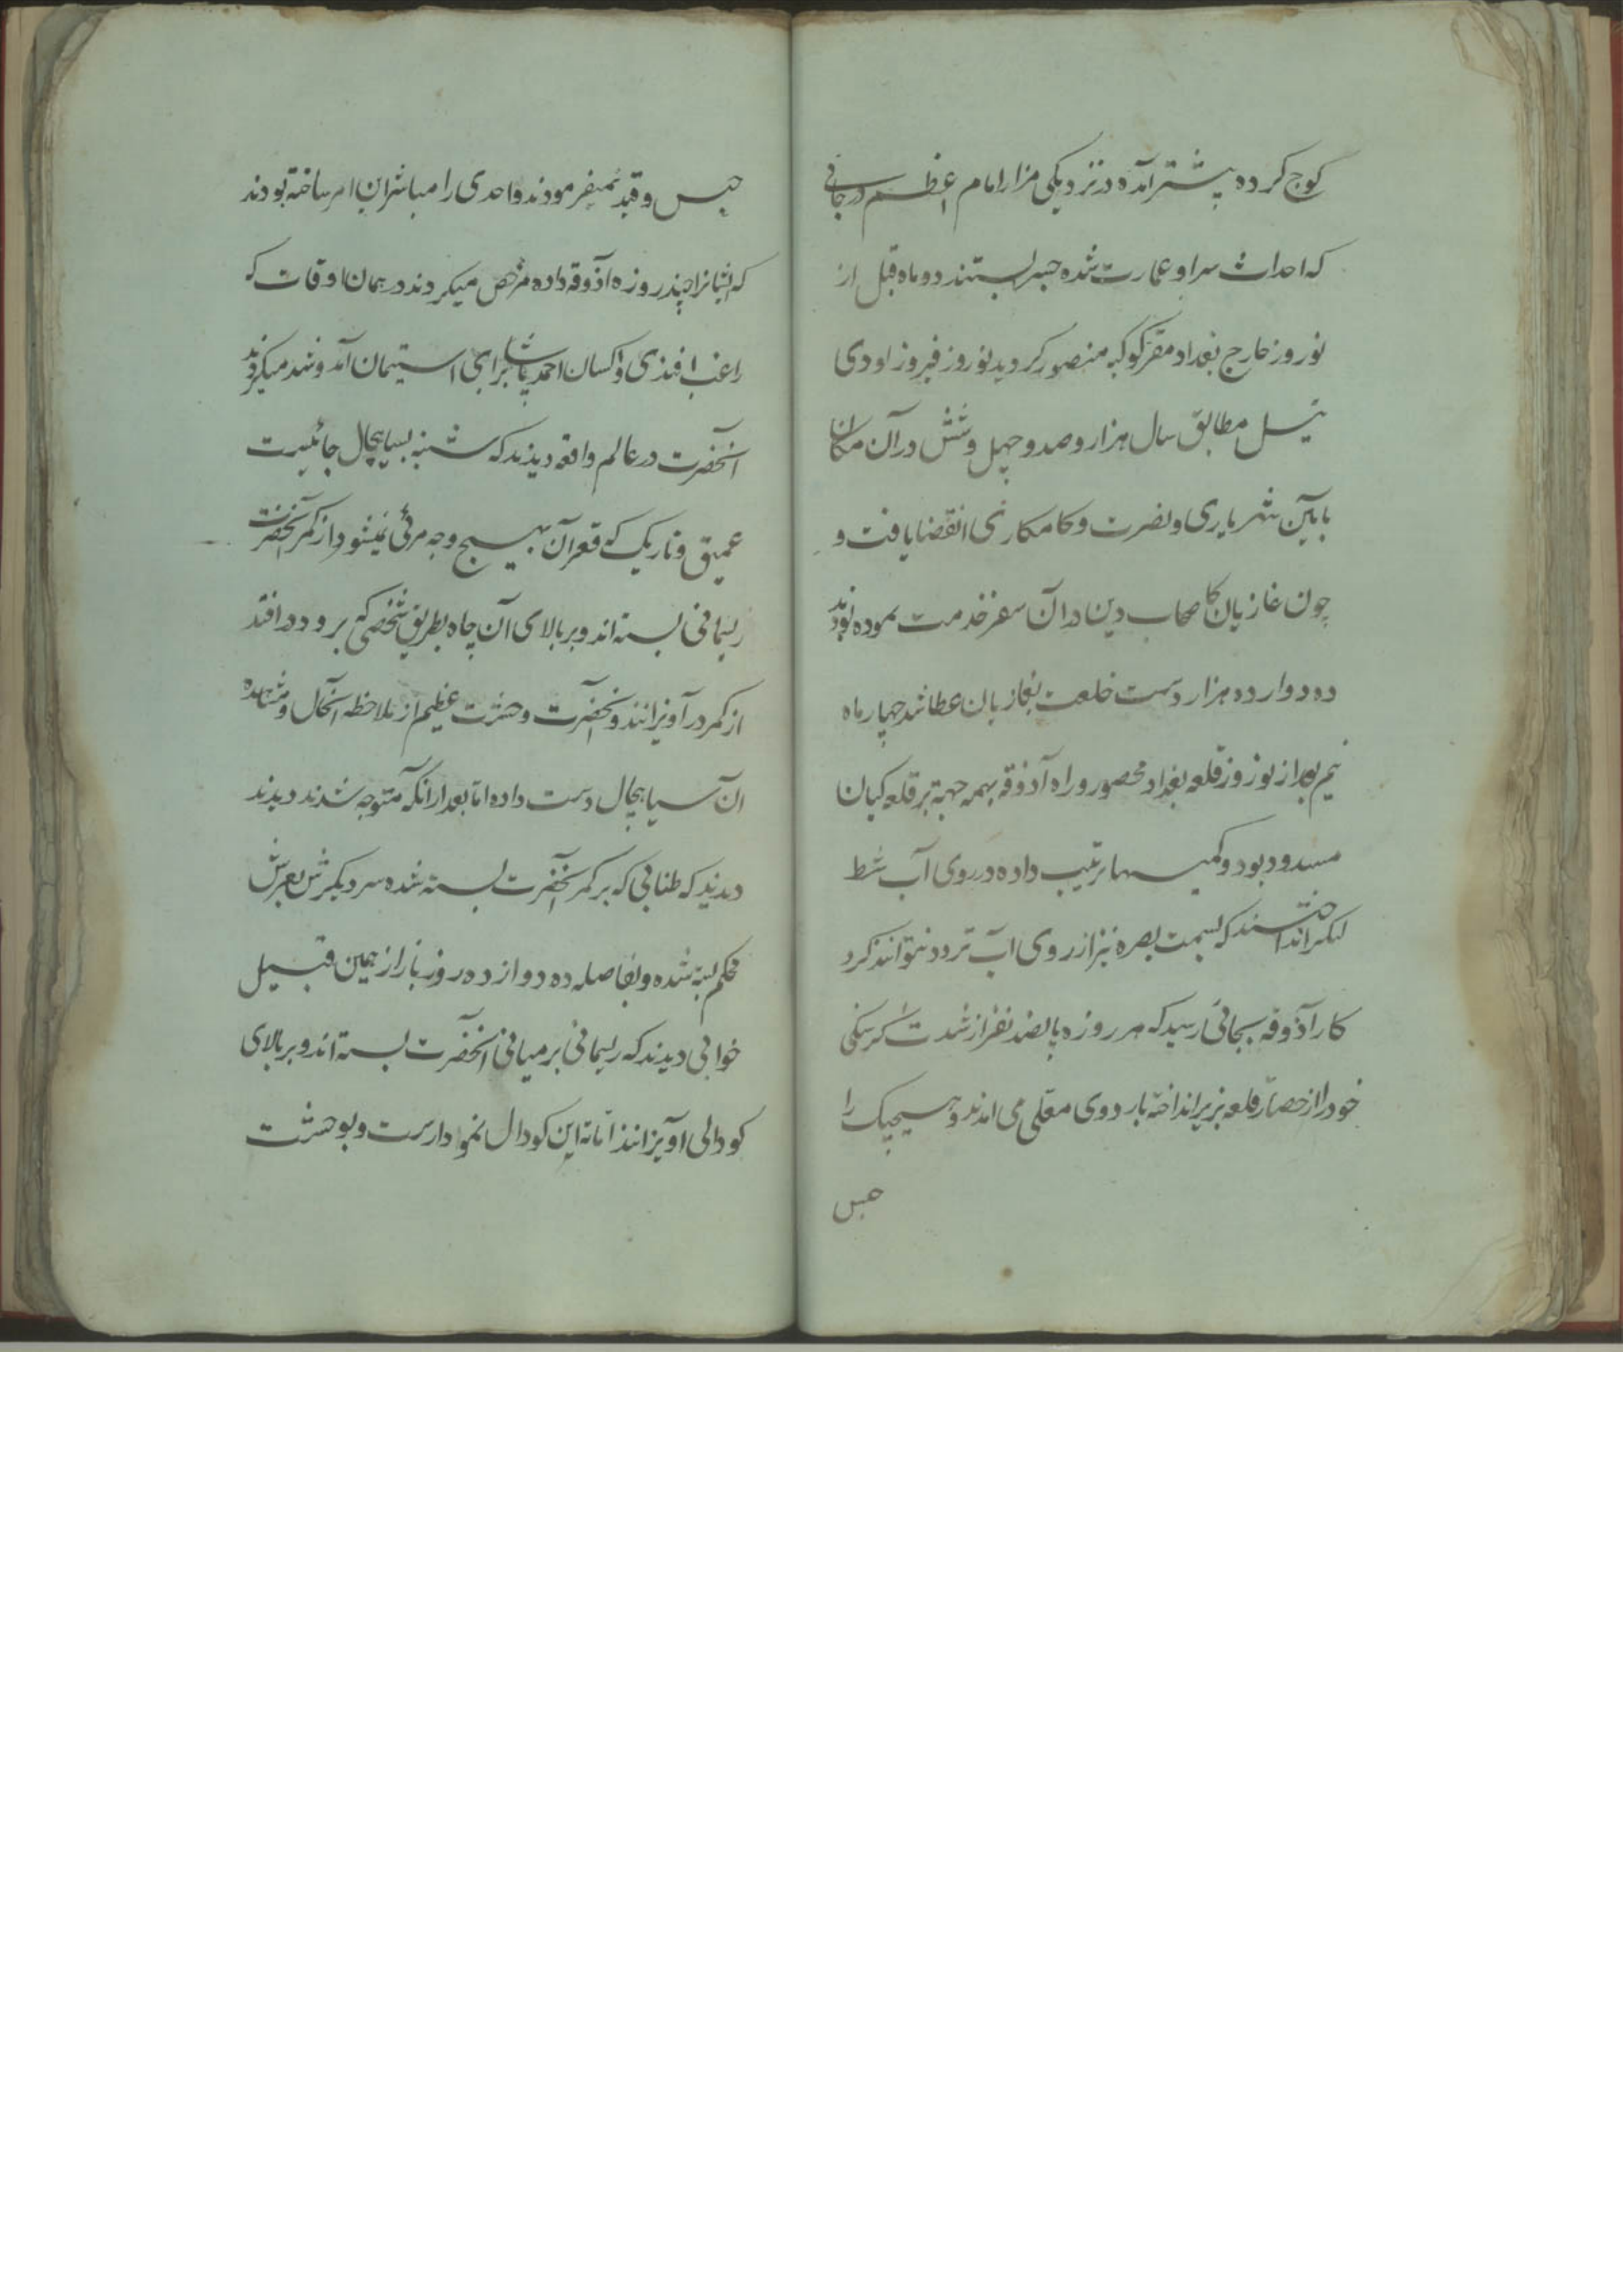 کوچ کرده پیشتر آمده در نزدیکی مزار امام اعظم در جائی
که احداث سرا و عمارت شده جسر بستند دو ماه قبل از
نوروز خارج بغداد مقر کوکبه منصور کردید نوروز فیروز اودی
ئیل مطابق سال هزار و صد و چهل و شش در آن مکان
بآیین شهریاری و نصرت و کامکاری انقضا یافت و
چون غازیان رکاب در آن سفر خدمت نموده بودند
ده دوازده هزار دست خلعت بغازیان عطا شد چهار ماه
نیم بعد از نوروز قلعه بغداد محصور و راه آذوقه بهمه جهة بر قلعه کیان
مسدود بود و کمیها ترتیب داده در روی آب شط
لنکر انداختند که بسمت بصره نیز از روی آب تردد نتوانند کرد
کار آذوقه بجائی رسید که هر روزه پانصد نفر از شدت کرسنکی
خود را از حصار قلعه بزیر انداخته باردوی معلی می امدند و هیچیک را
حبس
حبس و قید نمیفرمودند و احدی را مباشر این امر ساخته بودند
که ایشانرا چند روزه آذوقه داده مرخص میکردند در همان اوقات که
راغب افندی و کسان احمد پاشا برای استیمان آمد و شد میکردند
آنحضرت در عالم واقعه دیدند که شبیه بسیاهچال جائیست
عمیق و تاریک که قعر آن بهیچ وجه مرئی نمیشود و از کمر آنحضرت
ریسمانی بسته اند و بر بالای آن چاه بطریق شخصی که برو در افتد
از کمر در آویزانند و آنحضرت وحشت عظیم از ملاحظه آنحال و مشاهده
آن سیاهچال دست داده اما بعد از آنکه متوجه شدند دیدند
دیدند که طنابی که بر کمر آنحضرت بسته شده سر دیکرش بعرش
محکم بسته شده و بفاصله ده دوازده روز باز از همین قبیل
خوابی دیدند که ریسمانی بر میانی آنحضرت بسته اند و بر بالای
کودالی آویزانند اما ته این کودال نمودارست و بوحشت